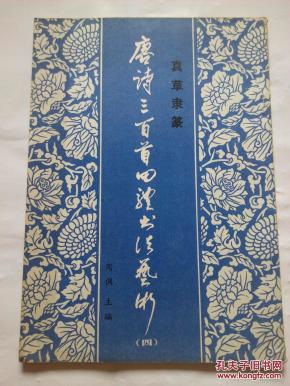 真草隶篆
唐诗三百首四体书法艺术
(四)
周倜 主编
孔夫子旧书网